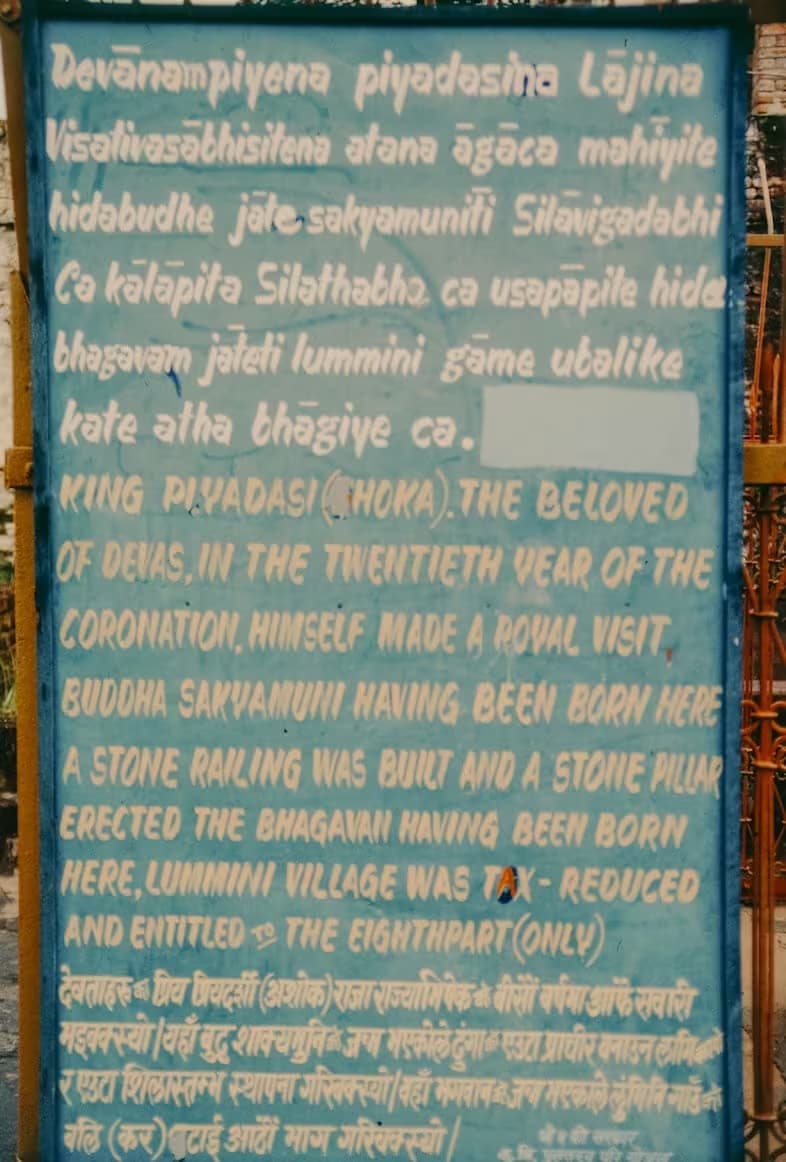 Devānampiyena piyadasina Lājina
Visativasābhisitena atana āgāca mahīyite
hidabudhe jāte sakyamunīti Silāvigadabhi
Ca kālāpita Silathabhe ca usapāpite hida
bhagavam jāteti lummini gāme ubalike
kate atha bhāgiye ca.
KING PIYADASI (HOKA). THE BELOVED
OF DEVAS, IN THE TWENTIETH YEAR OF THE
CORONATION, HIMSELF MADE A ROYAL VISIT,
BUDDHA SAKYAMUNI HAVING BEEN BORN HERE
A STONE RAILING WAS BUILT AND A STONE PILLAR
ERECTED THE BHAGAVAN HAVING BEEN BORN
HERE, LUMMINI VILLAGE WAS TAX-REDUCED
AND ENTITLED TO THE EIGHTHPART (ONLY)
देवताहरुको प्रिय प्रियदर्शी (अशोक) राजा राज्याभिषेकको बीसौं वर्षमा आफै सवारी
यहाँ बुद्ध शाक्यमुनिको जन्म प्राचीर
र एउटा शिलास्तम्भ स्थापना यहाँ भगवानको जन्म
बलि (कर) आठौं भाग